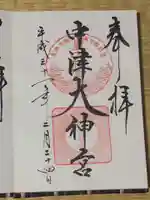 奉拝
中津大神宮
平成三十一年二月二十四日